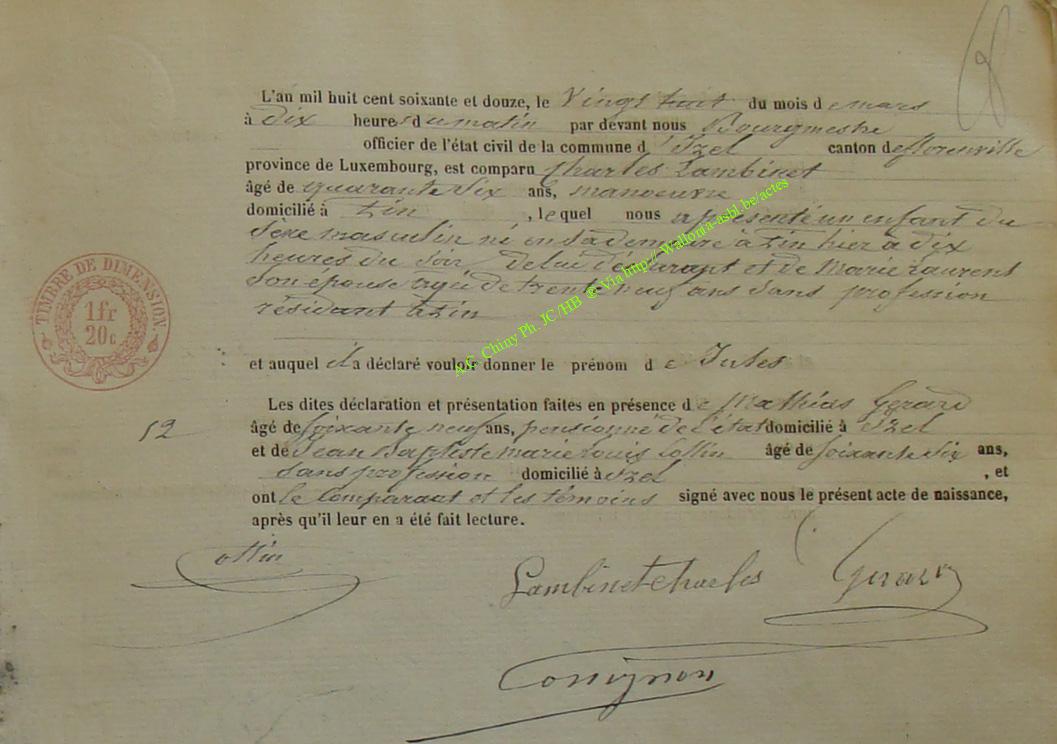 L'an mil huit cent soixante et douze, le Vingt huit du mois de mars
à dix heures du matin par devant nous Bourgmestre
officier de l'état civil de la commune d'Izel canton de florenville
province de Luxembourg, est comparu Charles Lambinet
âgé de quarante six ans, manoeuvre
domicilié à Pin, lequel nous a présenté un enfant du
Sexe masculin né en sa demeure à Pin hier à dix
heures du soir de lui déclarant et de Marie Laurent
Son épouse agée de trente neuf ans Sans profession
résidant à Pin
TIMBRE DE DIMENSION.
1fr
20c
et auquel il a déclaré vouloir donner le prénom de Jules
Les dites déclaration et présentation faites en présence de Mathias Gerard
12
âgé de soixante neuf ans, pensionné de l'état domicilié à Izel
et de Jean Baptiste marie Louis Collin âgé de soixante six ans,
sans profession domicilié à Izel, et
ont le Comparant et les témoins signé avec nous le présent acte de naissance,
après qu'il leur en a été fait lecture.
Lambinet Charles
Gerard
A.C. Chiny Ph. JC/HB © Via http://Wallonia-asbl.be/actes